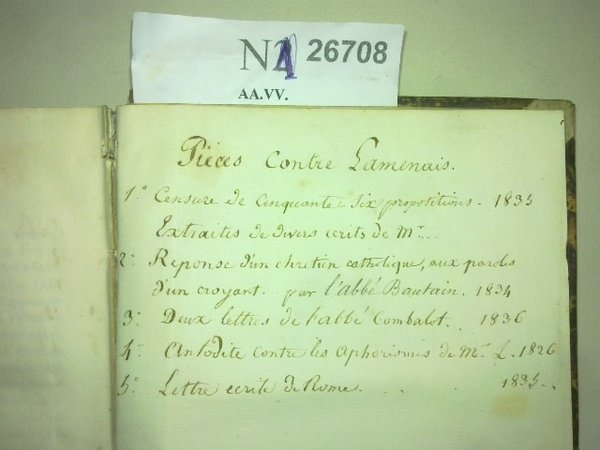 N1 26708
AA.VV.
Pièces Contre Lamenais.
1.° Censure de Cinquante e Six propositions. 1835
Extraites de divers ecrits de Mr...
2.° Reponse d'un chretien catholique, aux paroles
d'un croyant. par l'abbé Bautain. 1834
3.° Deux lettres de l'abbé Combalot. 1836
4.° Antodite contre les Aphorismes de Mr. L. 1826
5.° Lettre ecrite de Rome. . . . 1835..